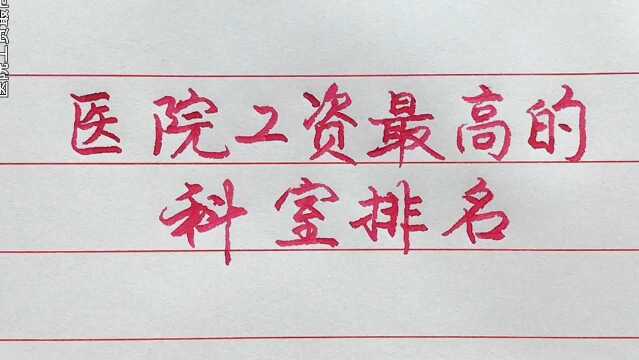 医院工资最高的
科室排名